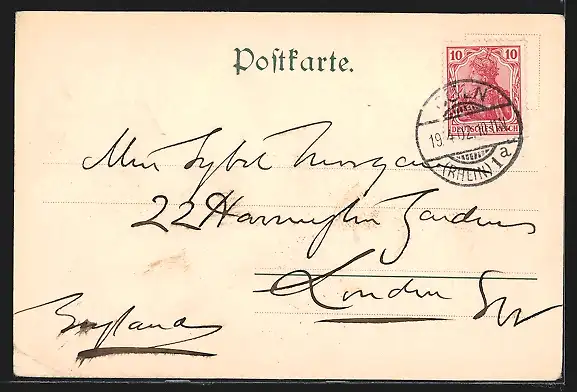 Postkarte.
10 10
DEUTSCHES REICH
CÖLN
19.4.02.
(RHEIN) 1a
Miss Sybil Morgan
22 Harrington Gardens
London SW
England